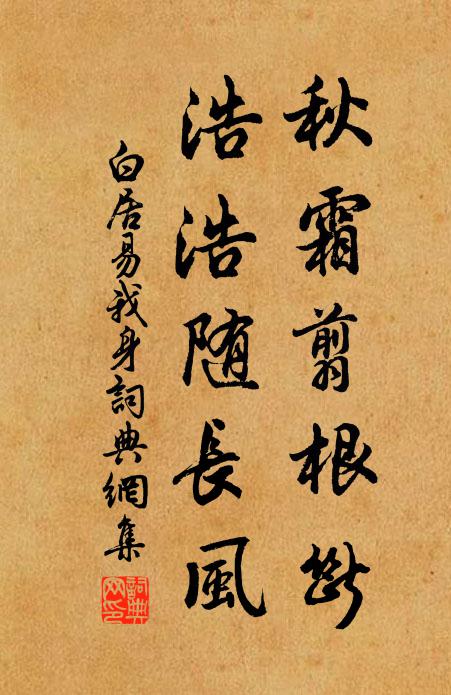 秋霜翦根斷
浩浩随長風
白居易我身詞典網集
詞典網印